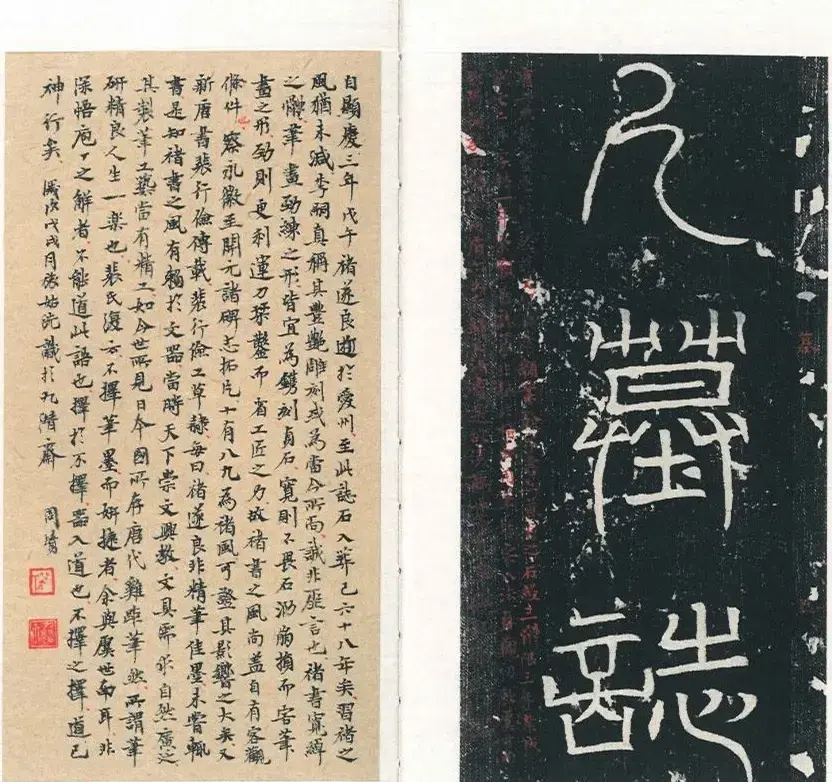 墓
誌
自顯慶三年戊午褚遂良逝於愛州至此誌石入葬已六十八年矣習褚之
風猶未減李嗣真稱其豐艷雕刻或為當今所尚哉非虛言也褚書寬綽
之體筆畫勁練之形皆宜為鐫刻貞石寬則不畏石泐崩損而害筆
畫之形勁則更利運刀鑿而省工匠之力故褚書之風尚蓋自有客觀
條件察永徽至開元諸碑志拓片十有八九為諸風可證其影響之大矣又
新唐書裴行儉傳載裴行儉工草隸每曰褚遂良非精筆佳墨未嘗輒
書是知褚書之風有賴於文器當時天下崇文興教文具需求自然廣泛
其製筆工藝當有精工如今世所見日本國所存唐代雞距筆然所謂筆
研精良人生一樂也裴氏復云不擇筆墨而妍捷者余與虞世南耳非
深悟庖丁之解者不能道此語也擇於不擇器入道也不擇之擇道已
神行矣歲次戊戌月識於九清齋周